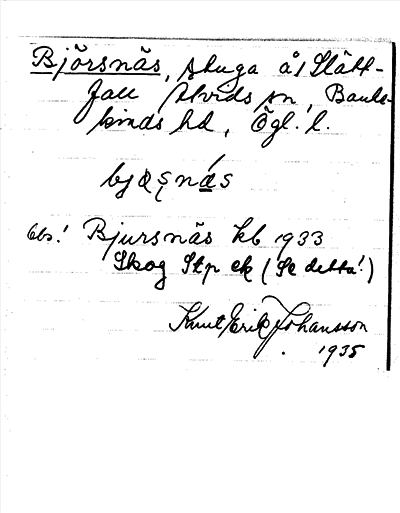 Björsnäs, stuga å/ Slätt-
fall Hvids sn, Banke-
kinds hd, Ögl. l.
bjɷʂnás
Obs! Bjursnäs kb 1933
Skog Stp ek (Se detta!)
Knut Erik Johansson
1935